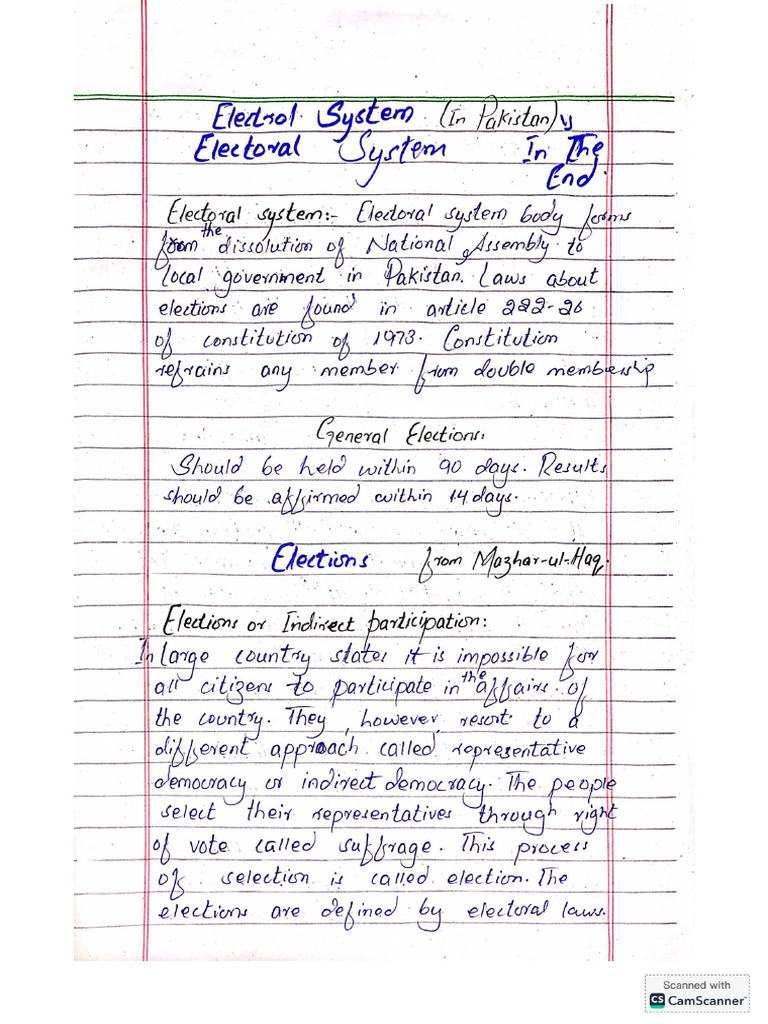 Electrol System (In Pakistan) vs
Electoral System In The
End.
Electoral system:- Electoral system body forms
from the dissolution of National Assembly to
local government in Pakistan. Laws about
elections are found in article 222-26
of constitution of 1973. Constitution
refrains any member from double membership
General Elections:
Should be held within 90 days. Results
should be affirmed within 14 days.
Elections from Mazhar-ul-Haq.
Elections or Indirect participation:
In large country states it is impossible for
all citizens to participate in the affairs of
the country. They, however, resort to a
different approach called representative
democracy or indirect democracy. The people
select their representatives through right
of vote called suffrage. This process
of selection is called election. The
elections are defined by electoral laws.
Scanned with
CS CamScanner